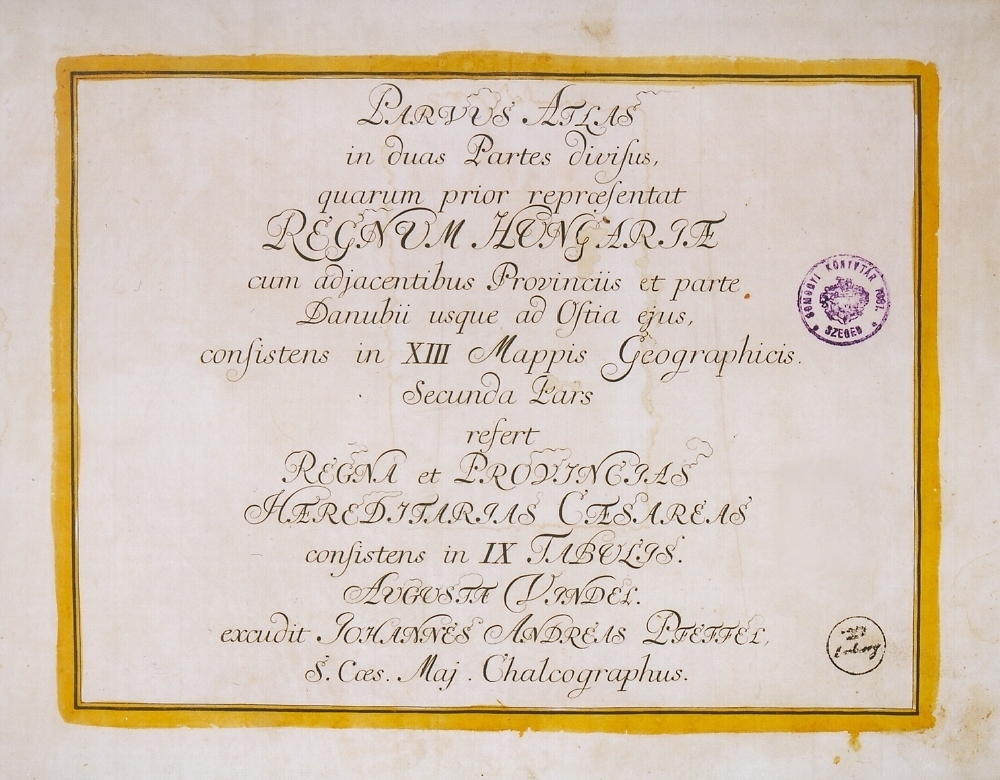 PARVUS ATLAS
in duas Partes diviſus,
quarum prior repræſentat
REGNUM HUNGARIÆ
cum adjacentibus Provinciis et parte
Danubii usque ad Oſtia ejus,
conſistens in XIII Mappis Geographicis.
Secunda Pars
refert
REGNA et PROVINCIAS
HÆREDITARIAS CÆSAREAS
conſistens in IX TABULIS.
AUGUSTÆ VINDEL.
excudit IOHANNES ANDREAS PFEFFEL,
S. Cæs. Maj. Chalcographus.
SOMOGYI KÖNYVTÁR
SZEGED